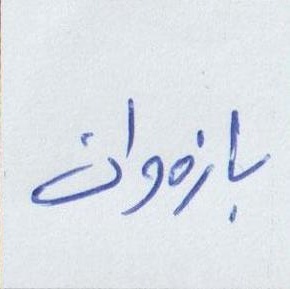 بازه‌وان